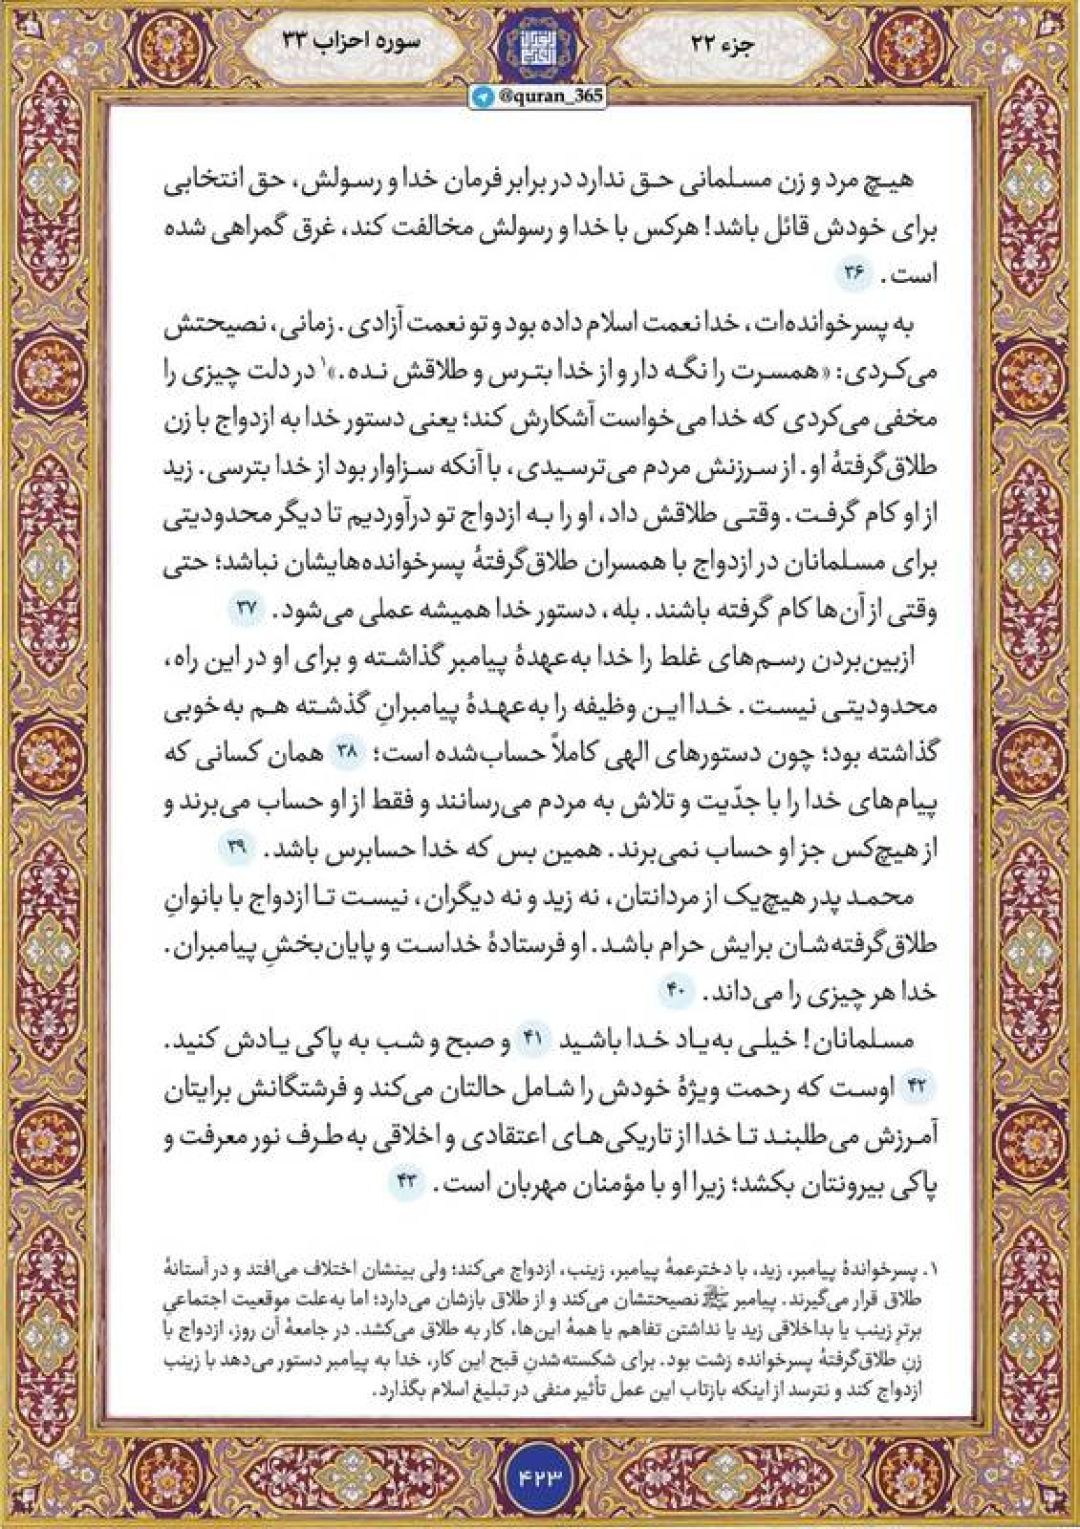 جزء ۲۲
سوره احزاب ۳۳
@quran_365
هیچ مرد و زن مسلمانی حق ندارد در برابر فرمان خدا و رسولش، حق انتخابی
برای خودش قائل باشد! هرکس با خدا و رسولش مخالفت کند، غرق گمراهی شده
است. ۳۶
به پسرخوانده‌ات، خدا نعمت اسلام داده بود و تو نعمت آزادی. زمانی، نصیحتش
می‌کردی: «همسرت را نگه دار و از خدا بترس و طلاقش نده.»۱ در دلت چیزی را
مخفی می‌کردی که خدا می‌خواست آشکارش کند؛ یعنی دستور خدا به ازدواج با زن
طلاق‌گرفتهٔ او. از سرزنش مردم می‌ترسیدی، با آنکه سزاوار بود از خدا بترسی. زید
از او کام گرفت. وقتی طلاقش داد، او را به ازدواج تو درآوردیم تا دیگر محدودیتی
برای مسلمانان در ازدواج با همسران طلاق‌گرفتهٔ پسرخوانده‌هایشان نباشد؛ حتی
وقتی از آن‌ها کام گرفته باشند. بله، دستور خدا همیشه عملی می‌شود. ۳۷
ازبین‌بردن رسم‌های غلط را خدا به‌عهدهٔ پیامبر گذاشته و برای او در این راه،
محدودیتی نیست. خدا این وظیفه را به‌عهدهٔ پیامبرانِ گذشته هم به‌خوبی
گذاشته بود؛ چون دستورهای الهی کاملاً حساب‌شده است؛ ۳۸ همان کسانی که
پیام‌های خدا را با جدّیت و تلاش به مردم می‌رسانند و فقط از او حساب می‌برند و
از هیچ‌کس جز او حساب نمی‌برند. همین بس که خدا حسابرس باشد. ۳۹
محمد پدر هیچ‌یک از مردانتان، نه زید و نه دیگران، نیست تا ازدواج با بانوانِ
طلاق‌گرفته‌شان برایش حرام باشد. او فرستادهٔ خداست و پایان‌بخشِ پیامبران.
خدا هر چیزی را می‌داند. ۴۰
مسلمانان! خیلی به‌یاد خدا باشید ۴۱ و صبح و شب به پاکی یادش کنید.
۴۲ اوست که رحمت ویژهٔ خودش را شامل حالتان می‌کند و فرشتگانش برایتان
آمرزش می‌طلبند تا خدا از تاریکی‌های اعتقادی و اخلاقی به‌طرف نور معرفت و
پاکی بیرونتان بکشد؛ زیرا او با مؤمنان مهربان است. ۴۳
۱. پسرخواندهٔ پیامبر، زید، با دخترعمهٔ پیامبر، زینب، ازدواج می‌کند؛ ولی بینشان اختلاف می‌افتد و در آستانهٔ
طلاق قرار می‌گیرند. پیامبر ﷺ نصیحتشان می‌کند و از طلاق بازشان می‌دارد؛ اما به‌علت موقعیت اجتماعیِ
برترِ زینب یا بداخلاقی زید یا نداشتن تفاهم یا همهٔ این‌ها، کار به طلاق می‌کشد. در جامعهٔ آن روز، ازدواج با
زنِ طلاق‌گرفتهٔ پسرخوانده زشت بود. برای شکسته‌شدنِ قبح این کار، خدا به پیامبر دستور می‌دهد با زینب
ازدواج کند و نترسد از اینکه بازتاب این عمل تأثیر منفی در تبلیغ اسلام بگذارد.
۴۲۳